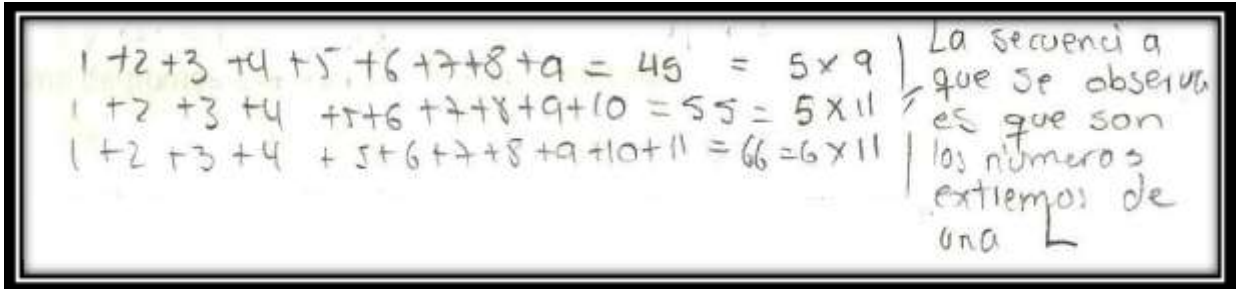 1 +2+3 +4 +5 +6 +7+8 +9 = 45 = 5 x 9
1 +2 +3 +4 +5+6 +7+8+9+10 = 55 = 5 x 11
1 +2 +3 +4 +5+6+7+8+9+10+11 = 66 = 6 x 11
La secuencia
que se observa
es que son
los números
extremos de
una L